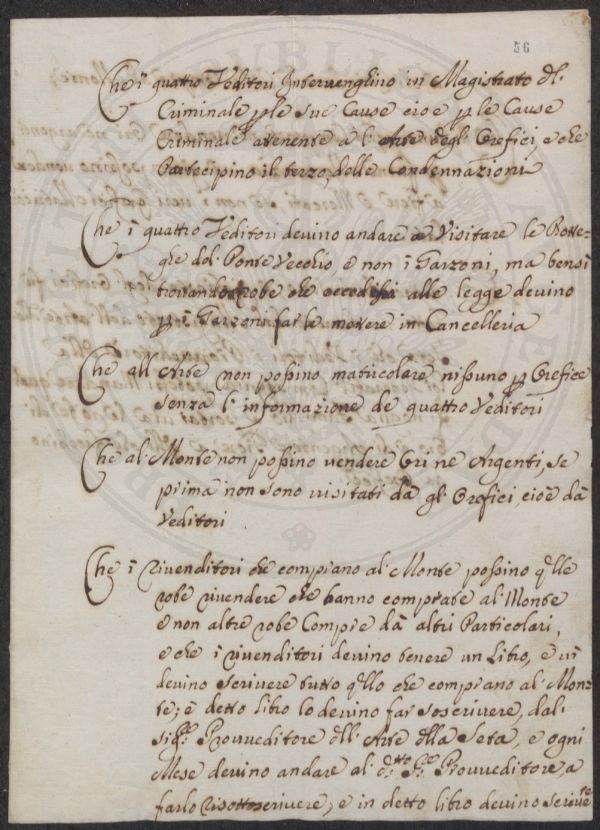 56
Che i quattro Veditori Intervenghino in Magistrato dl.
Criminale p le sue Cause cioè p le Cause
Criminale atenente a l'Arte degl' Orefici, e che
Partecipino il terzo, delle Condennazioni
Che i quattro Veditori devino andare a Visitare le Botte=
ghe del Ponte Vecchio e non i Garzoni, ma bensi
trovando robe che alle legge devino
p i Garzoni farle mettere in Cancelleria
Che all' Arte non possino matricolare nissuno p Orefice
senza l'informazione de quattro Veditori
Che al Monte non possino vendere Ori ne Argenti, se
prima non sono visitati dà gl' Orefici, cioè dà
Veditori
Che i rivenditori che comprano al Monte possino qlle
robe rivendere che hanno comprate al Monte
e non altre robe Compre dà altri Particolari,
e che i rivenditori devino tenere un Libro, e vi
devino scrivere tutto qllo che comprano al Mon=
te; e detto libro lo devino far soscrivere, dal
sig.re Provveditore dll' Arte dlla Seta, e ogni
Mese devino andare al d.tto S.re Provveditore a
farlo risottoscrivere; e in detto libro devino scrivere